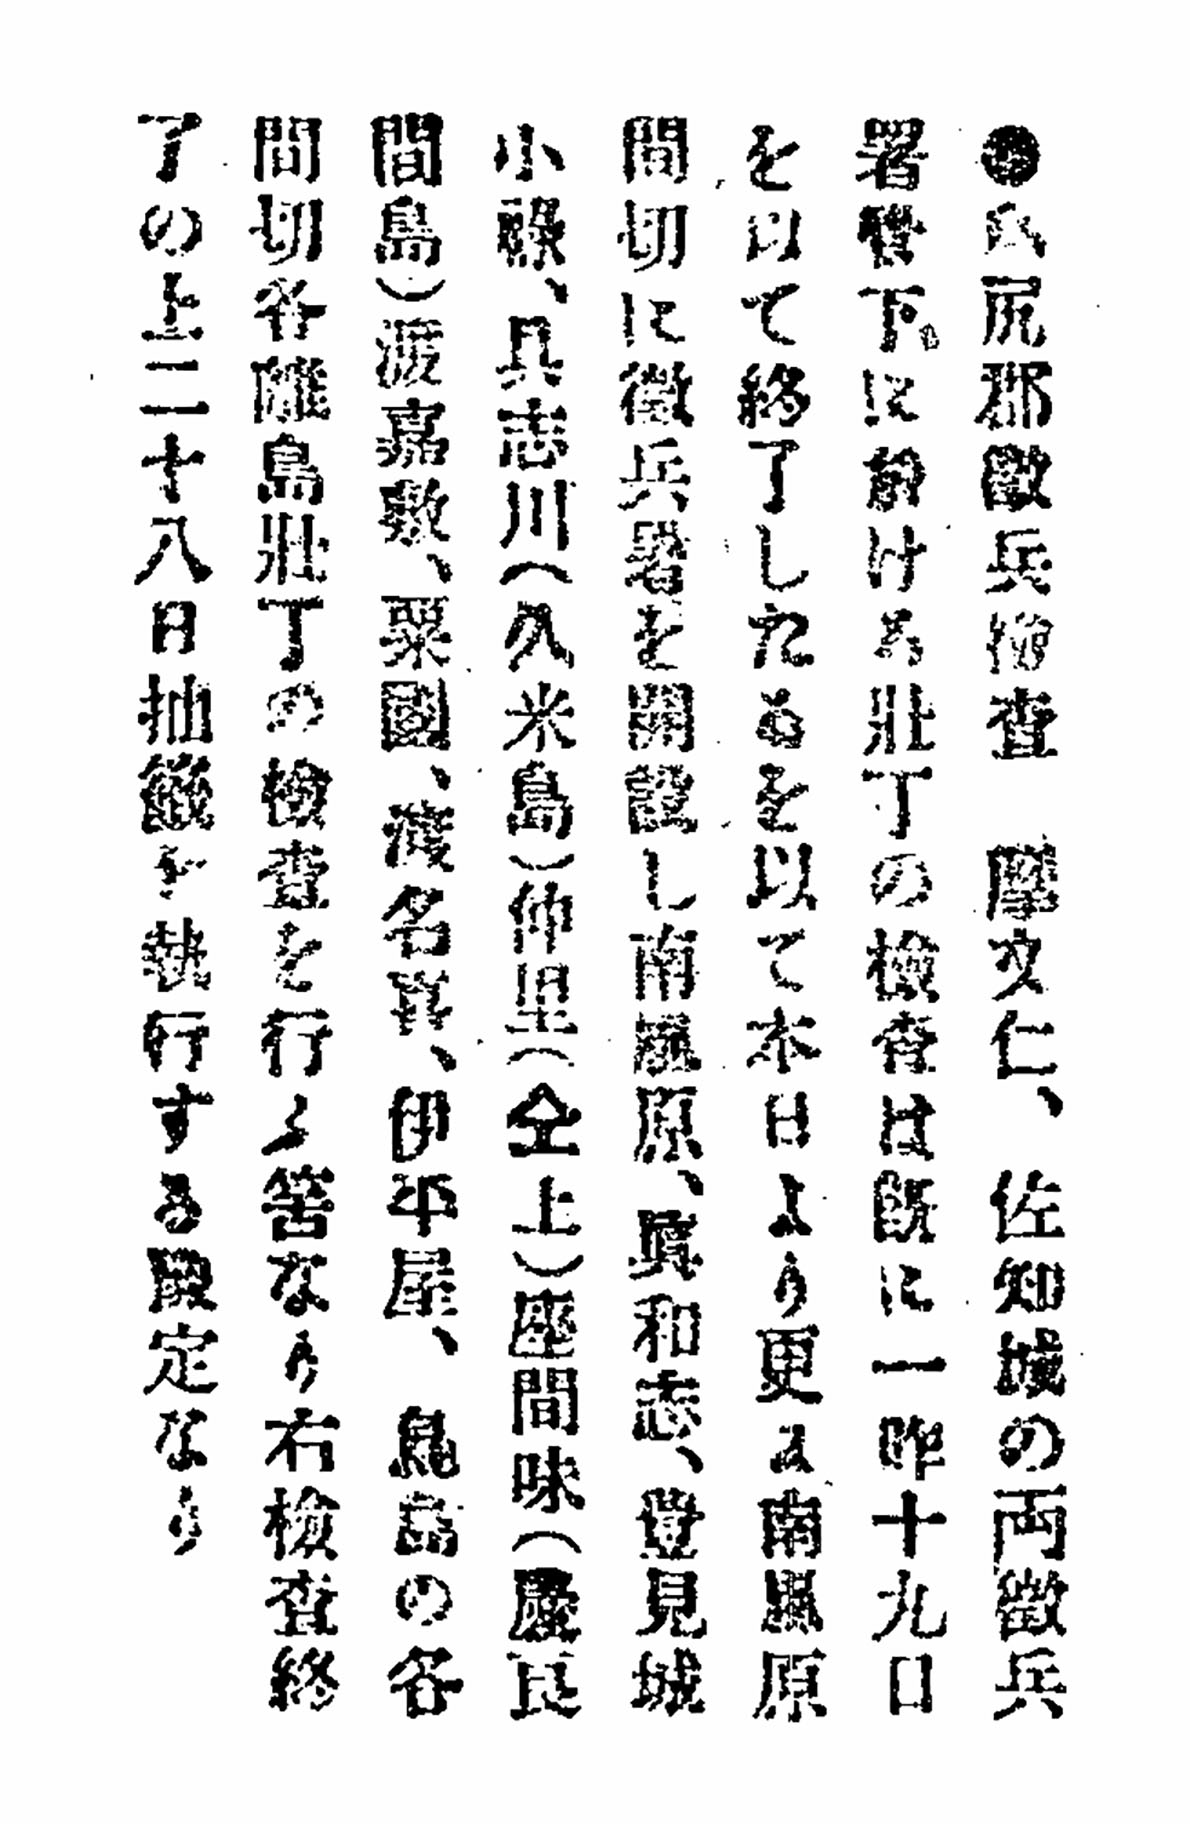 ●島尻郡徴兵検査　摩文仁、佐知城の両徴兵
署管下に於ける壯丁の検査は既に一昨十九日
を以て終了したるを以て本日より更に南風原
間切に徴兵署を開設し南風原、眞和志、豊見城
小祿、具志川(久米島)仲里(仝上)座間味(慶良
間島)渡嘉敷、粟國、渡名喜、伊平屋、鳥島の各
間切各離島壯丁の檢査を行ふ筈なり右檢査終
了の上二十八日抽籤を執行する段定なり